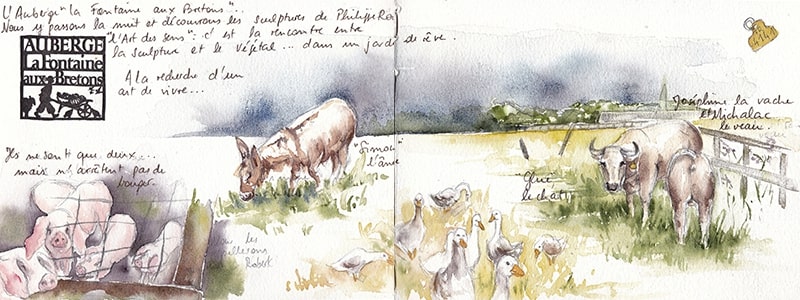 L'Auberge "La Fontaine aux Bretons"...
Nous y passons la nuit et découvrons les sculptures de Philippe
"l'Art des sens": c'est la rencontre entre
la sculpture et le végétal... dans un jardin de rêve.
AUBERGE
La Fontaine
aux Bretons
A la recherche d'un
art de vivre...
"Ils ne sont que deux...
mais n'arrêtent pas de
bouger.
"Simon"
l'âne
Joséphine la vache
et Michalac
le veau.
le chat
les
Robert
4141